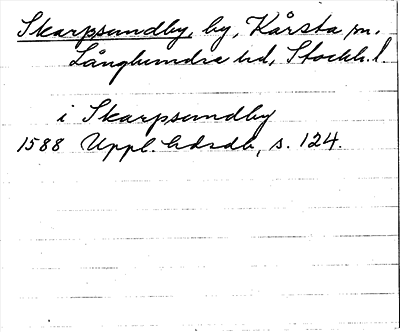 Skarpsundby, by, Kårsta sn.
Långhundra hd, Stockh. l.
i Skarpsundby
1588 Uppl. hdrdb, s. 124.